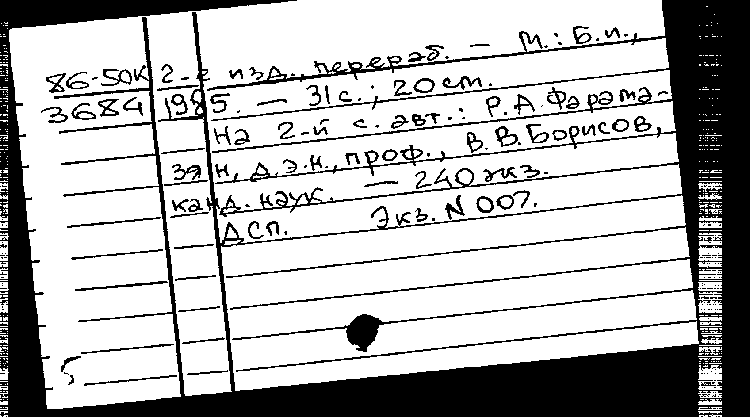 86-50К 2-е изд., перераб. — М.: Б.и.,
3684 1985. — 31 с.; 20 см.
На 2-й с. авт.: Р.А Фарама-
зян, д.э.н., проф., В.В.Борисов,
канд. наук. — 240 экз.
ДСП. Экз. N 007.